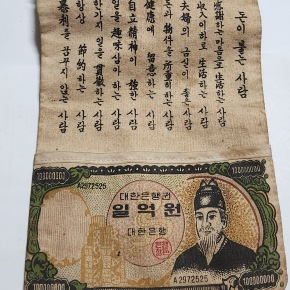 돈이 붙는 사람
感謝하는 마음으로 生活하는 사람
收入 이하로 生活하는 사람
夫婦의 금실이 좋은 사람
돈과 物件을 所重히 하는 사람
健康에 留意하는 사람
自立精神이 強한 사람
일을 趣味삼아 하는 사람
한가지 일을 貫徹하는 사람
항상 節約하는 사람
을 꿈꾸지 않는 사람
100000000
100000000
A2972525
대한은행권
일억원
대한은행
A 2972525
100000000
100000000